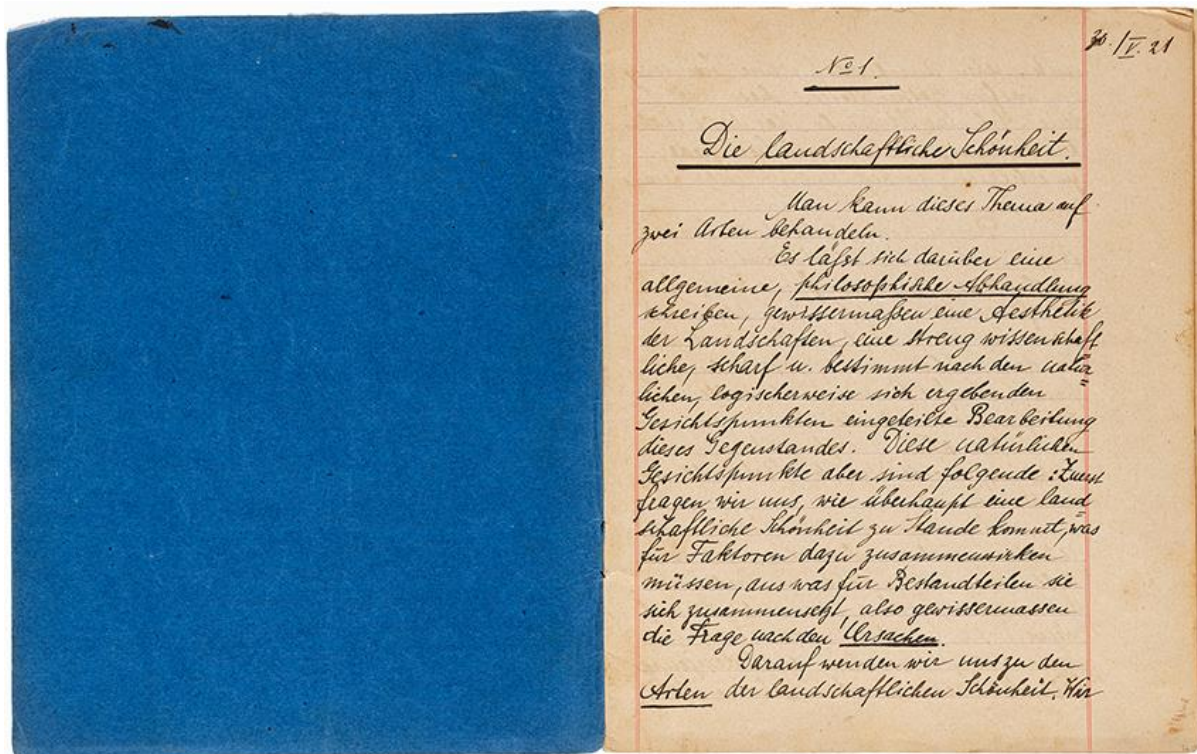 30./V. 21
No 1.
Die landschaftliche Schönheit.
Man kann dieses Thema auf
zwei Arten behandeln.
Es läßt sich darüber eine
allgemeine, philosophische Abhandlung
schreiben, gewissermaßen eine Aesthetik
der Landschaften, eine streng wissenschaft
liche, scharf u. bestimmt nach den natür=
lichen, logischerweise sich ergebenden
Gesichtspunkten eingeteilte Bearbeitung
dieses Gegenstandes. Diese natürlichen
Gesichtspunkte aber sind folgende: Zuerst
fragen wir uns, wie überhaupt eine land=
schaftliche Schönheit zu Stande kommt, was
für Faktoren dazu zusammenwirken
müssen, aus was für Bestandteilen sie
sich zusammensetzt, also gewissermassen
die Frage nach den Ursachen.
Darauf wenden wir uns zu den
Arten der landschaftlichen Schönheit. Wir